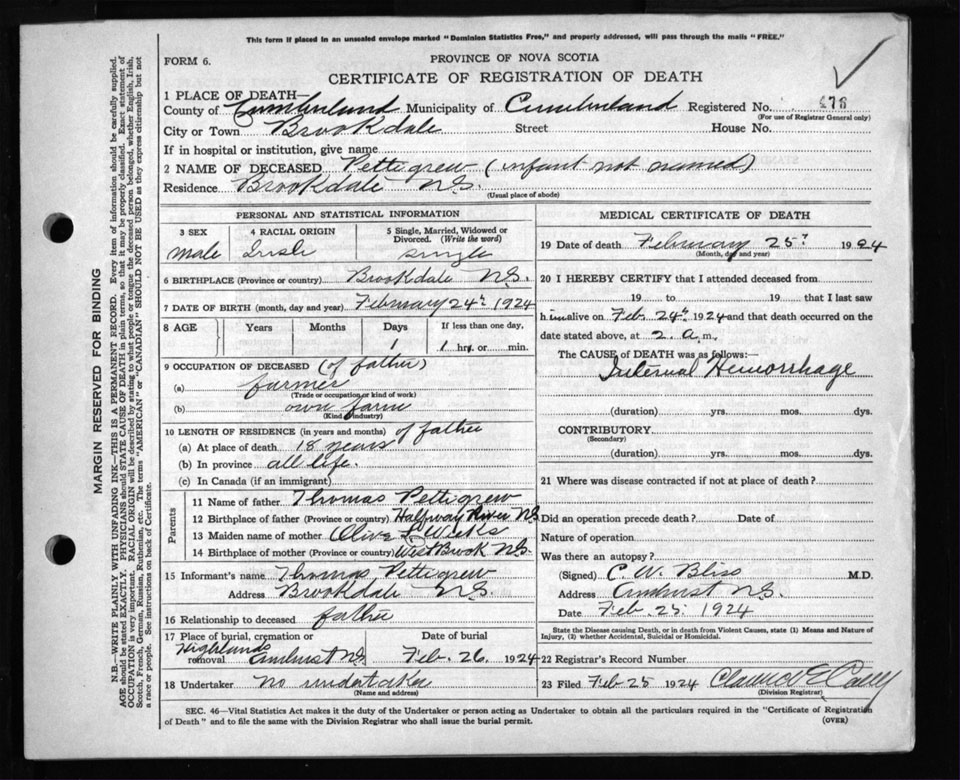 This form if placed in an unsealed envelope marked "Dominion Statistics Free," and properly addressed, will pass through the mails "FREE."
FORM 6.
PROVINCE OF NOVA SCOTIA
CERTIFICATE OF REGISTRATION OF DEATH
1 PLACE OF DEATH—
County of Cumberland Municipality of Cumberland Registered No. 478
(For use of Registrar General only)
City or Town Brookdale Street House No.
If in hospital or institution, give name
2 NAME OF DECEASED Pettigrew (infant not named)
Residence Brookdale N.S.
(Usual place of abode)
PERSONAL AND STATISTICAL INFORMATION
3 SEX 4 RACIAL ORIGIN 5 Single, Married, Widowed or Divorced. (Write the word)
male Irish single
6 BIRTHPLACE (Province or country) Brookdale N.S.
7 DATE OF BIRTH (month, day and year) February 24th 1924
8 AGE Years Months Days If less than one day,
1 1 hrs. or min.
9 OCCUPATION OF DECEASED (of father)
(a) farmer
(Trade or occupation or kind of work)
(b) own farm
(Kind of industry)
10 LENGTH OF RESIDENCE (in years and months) of father
(a) At place of death 18 years
(b) In province all life.
(c) In Canada (if an immigrant)
Parents
11 Name of father Thomas Pettigrew
12 Birthplace of father (Province or country) Halfway River N.S.
13 Maiden name of mother Olive
14 Birthplace of mother (Province or country) West Brook N.S.
15 Informant's name Thomas Pettigrew
Address Brookdale N.S.
16 Relationship to deceased father
17 Place of burial, cremation or removal Date of burial
Highlands Amherst N.S. Feb. 26 1924
18 Undertaker No undertaker
(Name and address)
MEDICAL CERTIFICATE OF DEATH
19 Date of death February 25th 1924
(Month, day and year)
20 I HEREBY CERTIFY that I attended deceased from
19 to 19 that I last saw
him alive on Feb. 24th 1924 and that death occurred on the
date stated above, at 2 a.m.
The CAUSE of DEATH was as follows:
Internal Hemorrhage
(duration) yrs. mos. dys.
CONTRIBUTORY
(Secondary)
(duration) yrs. mos. dys.
21 Where was disease contracted if not at place of death?
Did an operation precede death? Date of
Nature of operation
Was there an autopsy?
(Signed) C. W. Bliss M.D.
Address Amherst N.S.
Date Feb. 25. 1924
State the Disease causing Death, or in death from Violent Causes, state (1) Means and Nature of
Injury, (2) whether Accidental, Suicidal or Homicidal.
22 Registrar's Record Number
23 Filed Feb 25 1924
(Division Registrar)
SEC. 46—Vital Statistics Act makes it the duty of the Undertaker or person acting as Undertaker to obtain all the particulars required in the "Certificate of Registration
of Death" and to file the same with the Division Registrar who shall issue the burial permit.
(OVER)
MARGIN RESERVED FOR BINDING
N.B.—WRITE PLAINLY WITH UNFADING INK—THIS IS A PERMANENT RECORD. Every item of information should be carefully supplied.
AGE should be stated EXACTLY. PHYSICIANS should STATE CAUSE OF DEATH in plain terms, so that it may be properly classified. Exact statement of
OCCUPATION is very important. RACIAL ORIGIN will be described by stating to what people or tongue the deceased person belonged, whether English, Irish,
Scotch, French, German, Russian, Ruthenian, etc. The terms "AMERICAN" or "CANADIAN" SHOULD NOT BE USED as they express citizenship but not
a race or people. See instructions on back of Certificate.